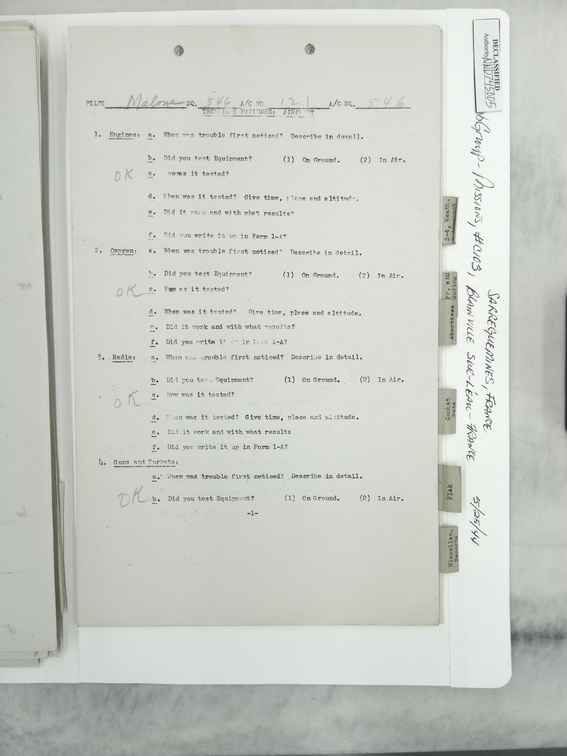 PILOT Malone SQ. 546 A/C NO 121 A/C SQ. 546
TECHNICAL FAILURES; AIRCRAFT
1. Engines: a. When was trouble first noticed? Describe in detail.
b. Did you test Equipment? (1) On Ground. (2) In Air.
OK c. How was it tested?
d. When was it tested? Give time, place and altitude.
e. Did it work and with what results?
f. Did you write it up in Form 1-A?
2. Oxygen: a. When was trouble first noticed? Describe in detail.
b. Did you test Equipment? (1) On Ground. (2) In Air.
OK c. How was it tested?
d. When was it tested? Give time, place and altitude.
e. Did it work and with what results?
f. Did you write it up in Form 1-A?
3. Radio: a. When was trouble first noticed? Describe in detail.
b. Did you test Equipment? (1) On Ground. (2) In Air.
OK c. How was it tested?
d. When was it tested? Give time, place and altitude.
e. Did it work and with what results
f. Did you write it up in Form 1-A?
4. Guns and Turrets:
a. When was trouble first noticed? Describe in detail.
OK b. Did you test Equipment? (1) On Ground. (2) In Air.
-1-
DECLASSIFIED
Authority NND745005
Group - Missions, #CN03, SARREGUEMINES, FRANCE
BLAINVILLE SUR-L'EAU - FRANCE 5/25/44
Abortives
Combat
Data
Flak
Miscellan.